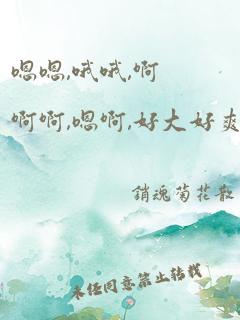 嗯嗯,哦哦,啊
啊啊,嗯啊,好大好爽
銷魂菊花散
未经同意禁止转载